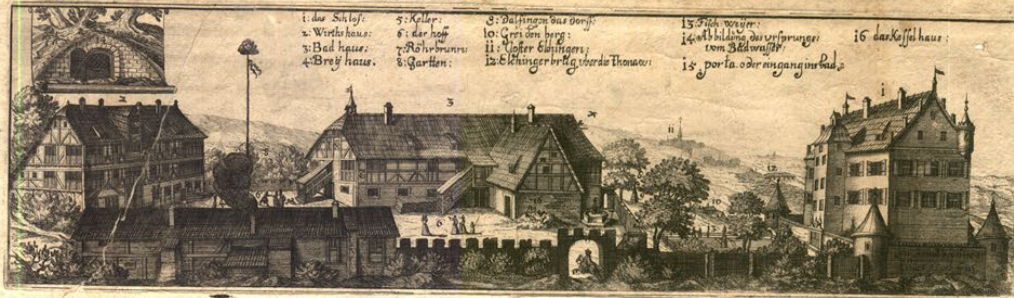 1: das Schloß:
2: Wirthshaus:
3: Bad haus:
4: Breÿ haus.
5: Keller:
6: der hoff
7: Röhrbrunn:
8: Gartten:
9: Dalfingen das dorf:
10: Greiden berg:
11: Closter Elchingen:
12: Elchinger brug über die Thonaw:
13: Fisch weÿer:
14: Abbildung des ursprungs
vom Badwasser:
15. porta oder eingang ins bad.
16 das Kessel haus:
2
3
11
12
10
6
1